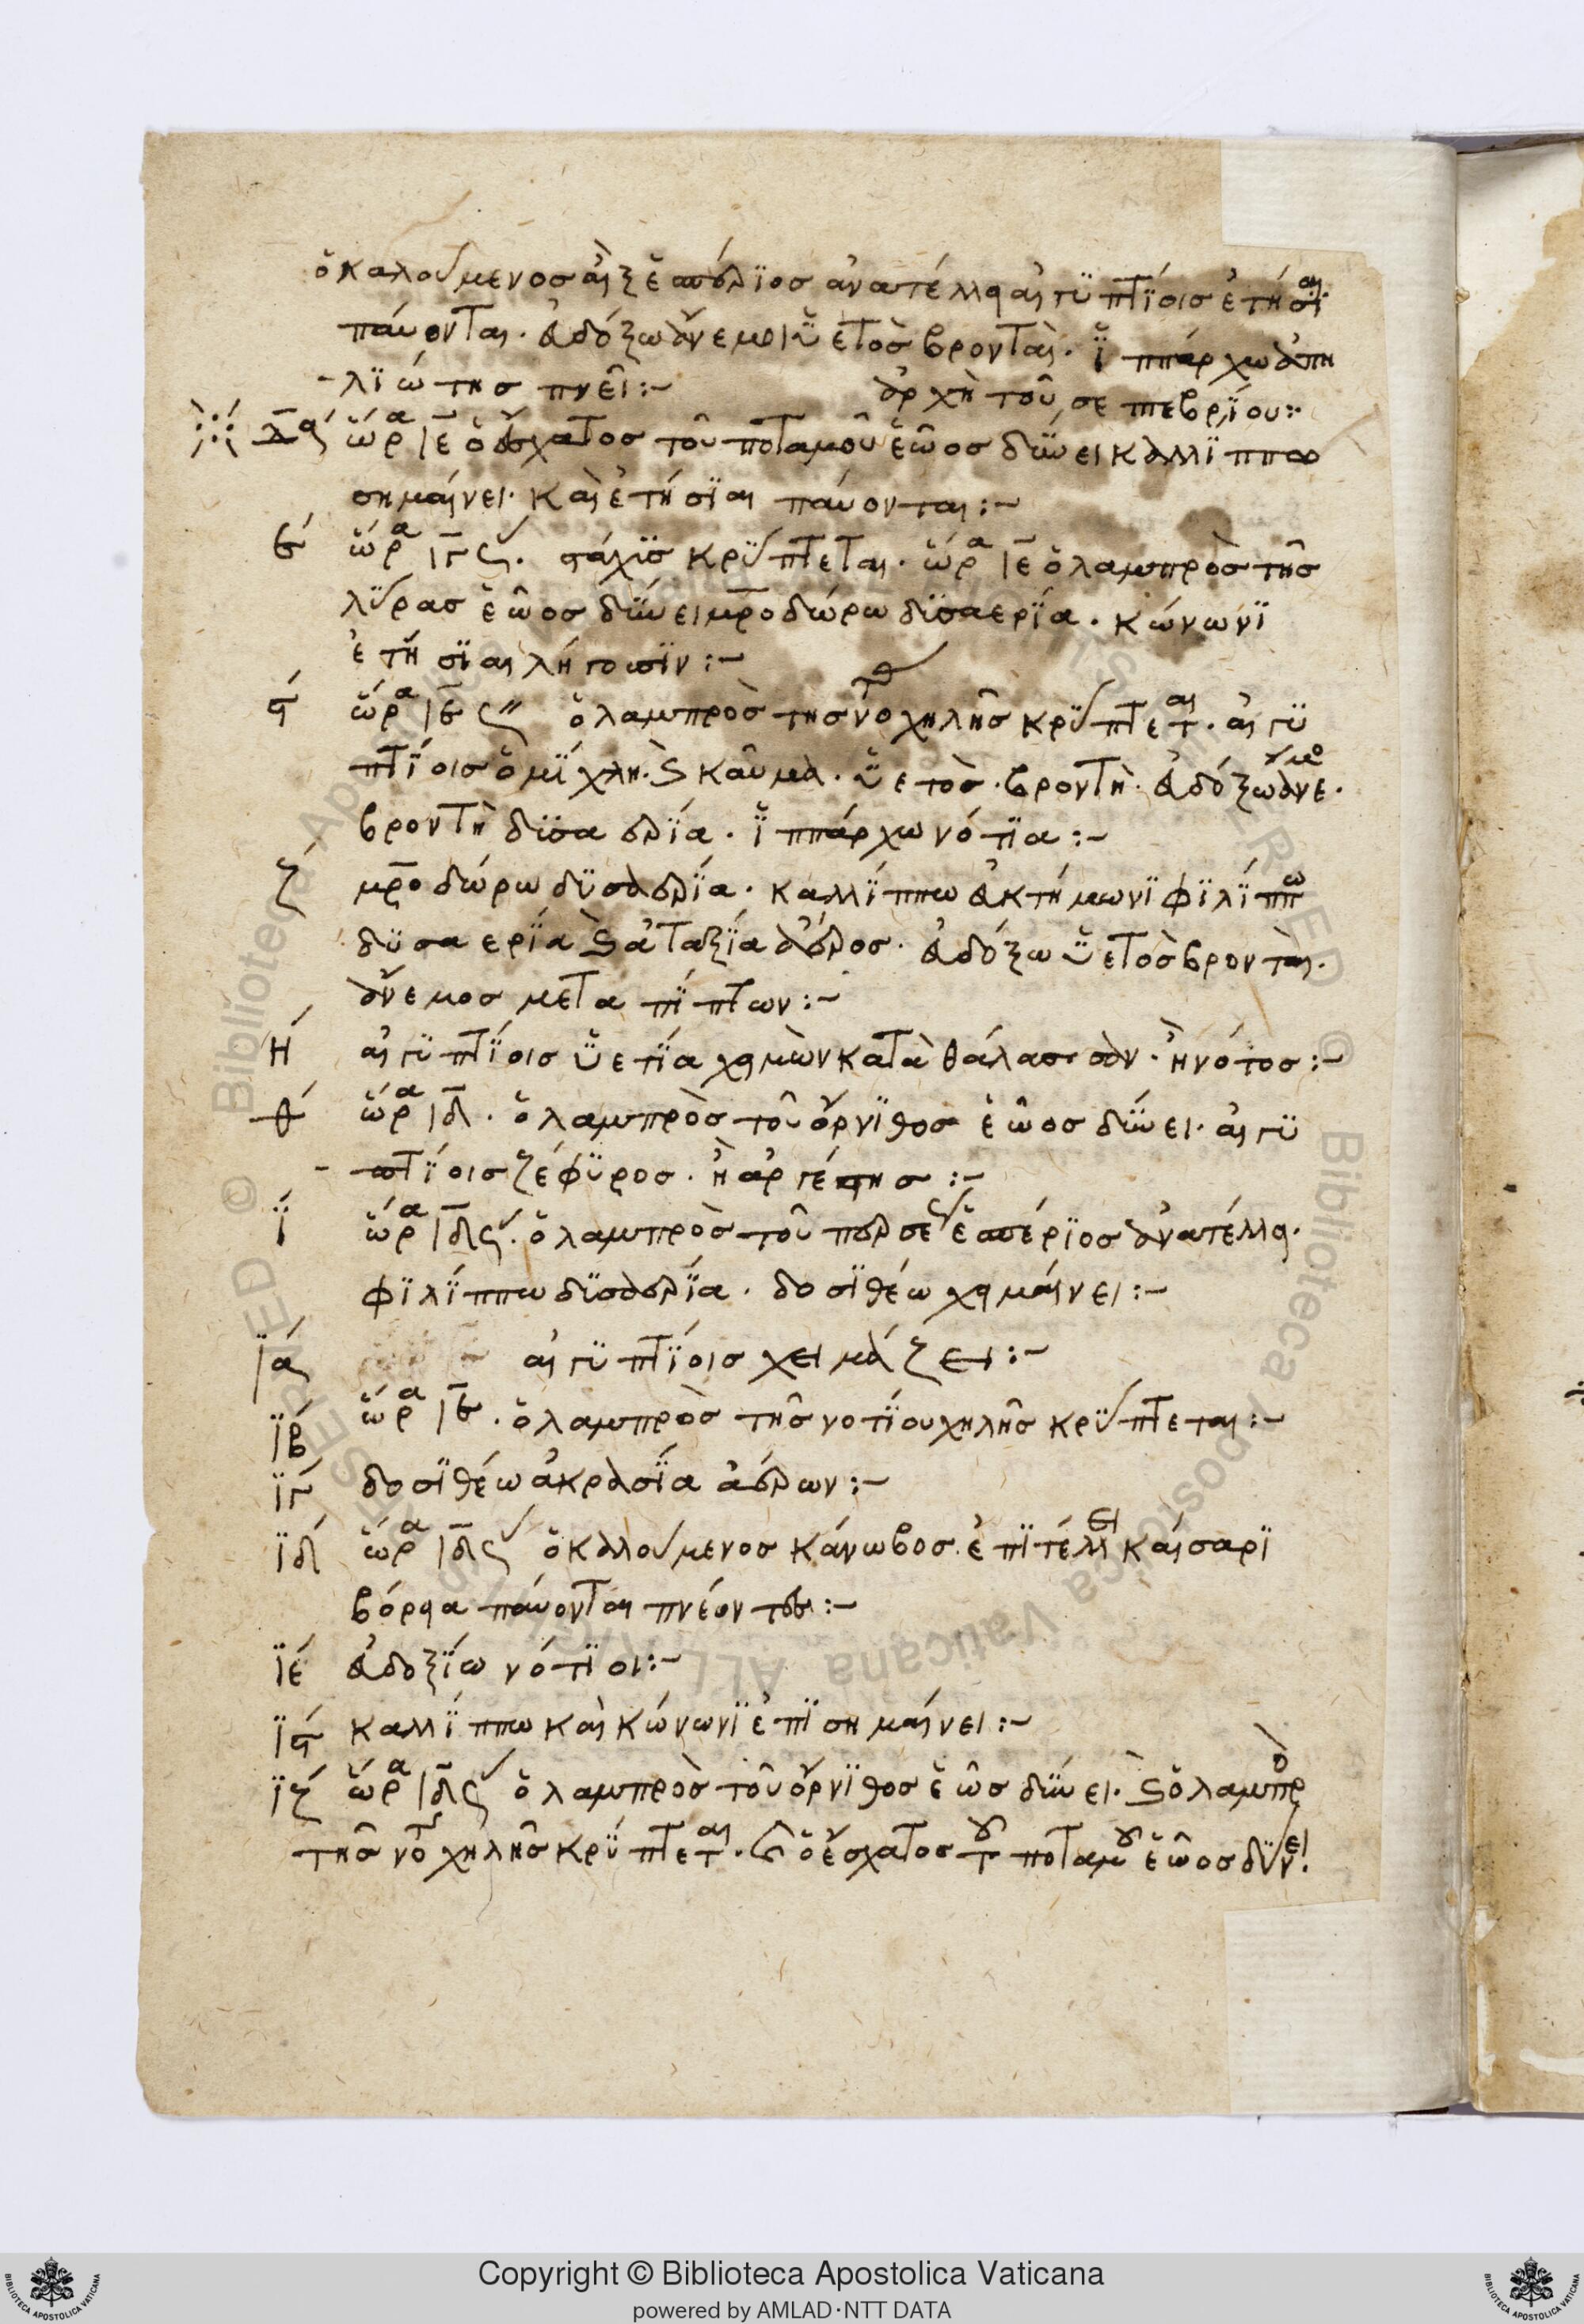 ὁ καλούμενος αἲξ ἑσπέριος ἀνατέλλει αἰγυπτίοις ἐτησίαι
παύονται. εὐδόξω ἄνεμοι ὑετὸς βρονταὶ. ἱππάρχω ἀπη
λιώτης πνεῖ:~ ἀρχὴ τοῦ σεπτεβρίου:
ὥρα ιε ὁ ἔσχατος τοῦ ποταμοῦ ἑῶος δύνει καλλίππω
σημαίνει. καὶ ἐτησίαι παύονται:~
β ὥρα ιγ ς. στάχυς κρύπτεται. ὥρα ιε ὁ λαμπρὸς τῆς
λύρας ἑῶος δύνει μητροδώρω δυσαερία. κώνωνι
ἐτησίαι λήγουσιν:~
ς ὥρα ιβ ς ὁ λαμπρὸς τῆς νο χηλῆς κρύπτεται. αἰγυ
πτίοις ὁμίχλη. ϗ καῦμα. ὑετὸς. βροντὴ. εὐδόξω ἄνεμο
βροντὴ δυσαερία. ἱππάρχω νότια:~
ζ μητροδώρω δυσαερία. καλλίππω εὐκτήμωνι φιλίππω
δυσαερία ϗ ἀταξία ἀέρος. εὐδόξω ὑετὸς βρονταὶ.
ἄνεμος μεταπίπτων:~
η αἰγυπτίοις ὑετία χειμὼν κατὰ θάλασσαν. ἢ νότος:~
θ ὥρα ιδ. ὁ λαμπρὸς τοῦ ὄρνιθος ἑῶος δύνει. αἰγυ
πτίοις ζέφυρος. ἢ ἀργέστης:~
ι ὥρα ιδ ς. ὁ λαμπρὸς τοῦ περσέως ἑσπέριος ἀνατέλλει.
φιλίππω δυσαερία. δοσιθέω χειμαίνει:~
ια αἰγυπτίοις χειμάζει:~
ιβ ὥρα ιβ. ὁ λαμπρὸς τῆς νοτίου χηλῆς κρύπτεται:~
ιγ δοσιθέω ἀκρασία ἀέρων:~
ιδ ὥρα ιδ ς ὁ καλούμενος κάνωβος ἐπιτέλλει καίσαρι
βόρεια παύονται πνέοντα:~
ιε εὐδοξίω νότιοι:~
ις καλλίππω καὶ κώνωνι ἐπισημαίνει:~
ιζ ὥρα ιδ ς ὁ λαμπρὸς τοῦ ὄρνιθος ἑῶς δύνει. ϗ ὁ λαμπρὸ
τῆς νοτ χηλῆς κρύπτεται. ϗ ὁ ἔσχατος τοῦ ποταμοῦ ἑῶος δύνει.